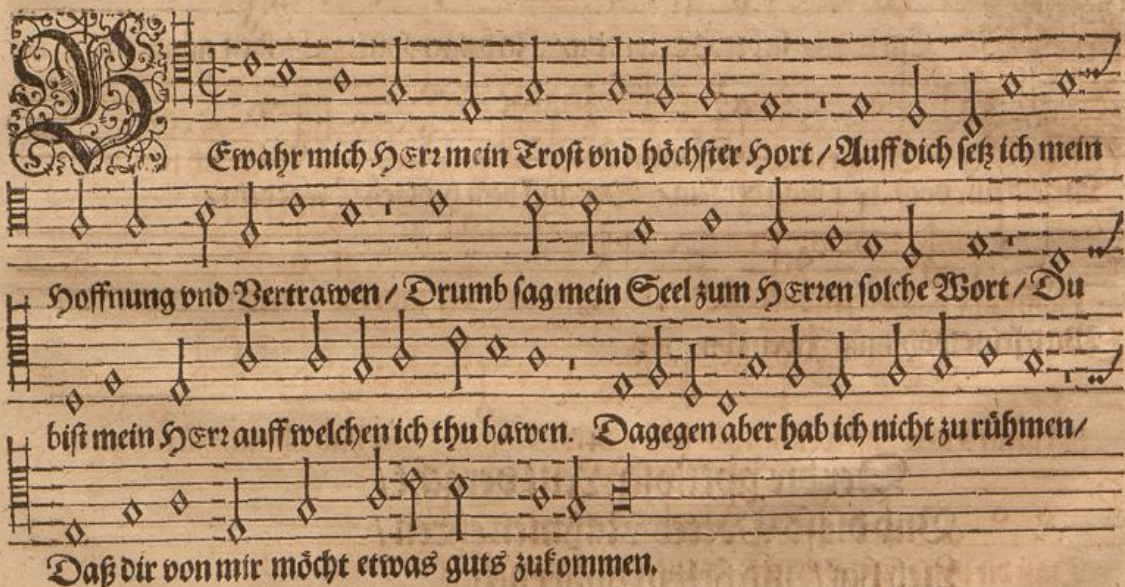 BEwahr mich HErr mein Trost vnd höchster Hort / Auff dich setz ich mein
Hoffnung vnd Vertrawen / Drumb sag mein Seel zum HErren solche Wort / Du
bist mein HErr auff welchen ich thu bawen. Dagegen aber hab ich nicht zu rühmen /
Daß dir von mir möcht etwas guts zukommen.